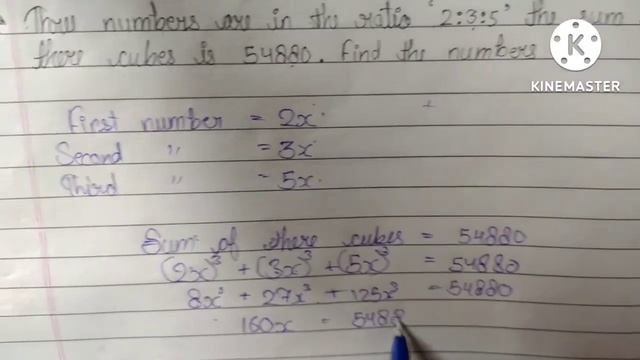 Three numbers are in the ratio 2:3:5 the sum
there cubes is 54880. Find the numbers
K
KINEMASTER
First number = 2x
Second " = 3x
Third " = 5x
Sum of there cubes = 54880
(2x)³ + (3x)³ + (5x)³ = 54880
8x³ + 27x³ + 125x³ = 54880
160x = 5488